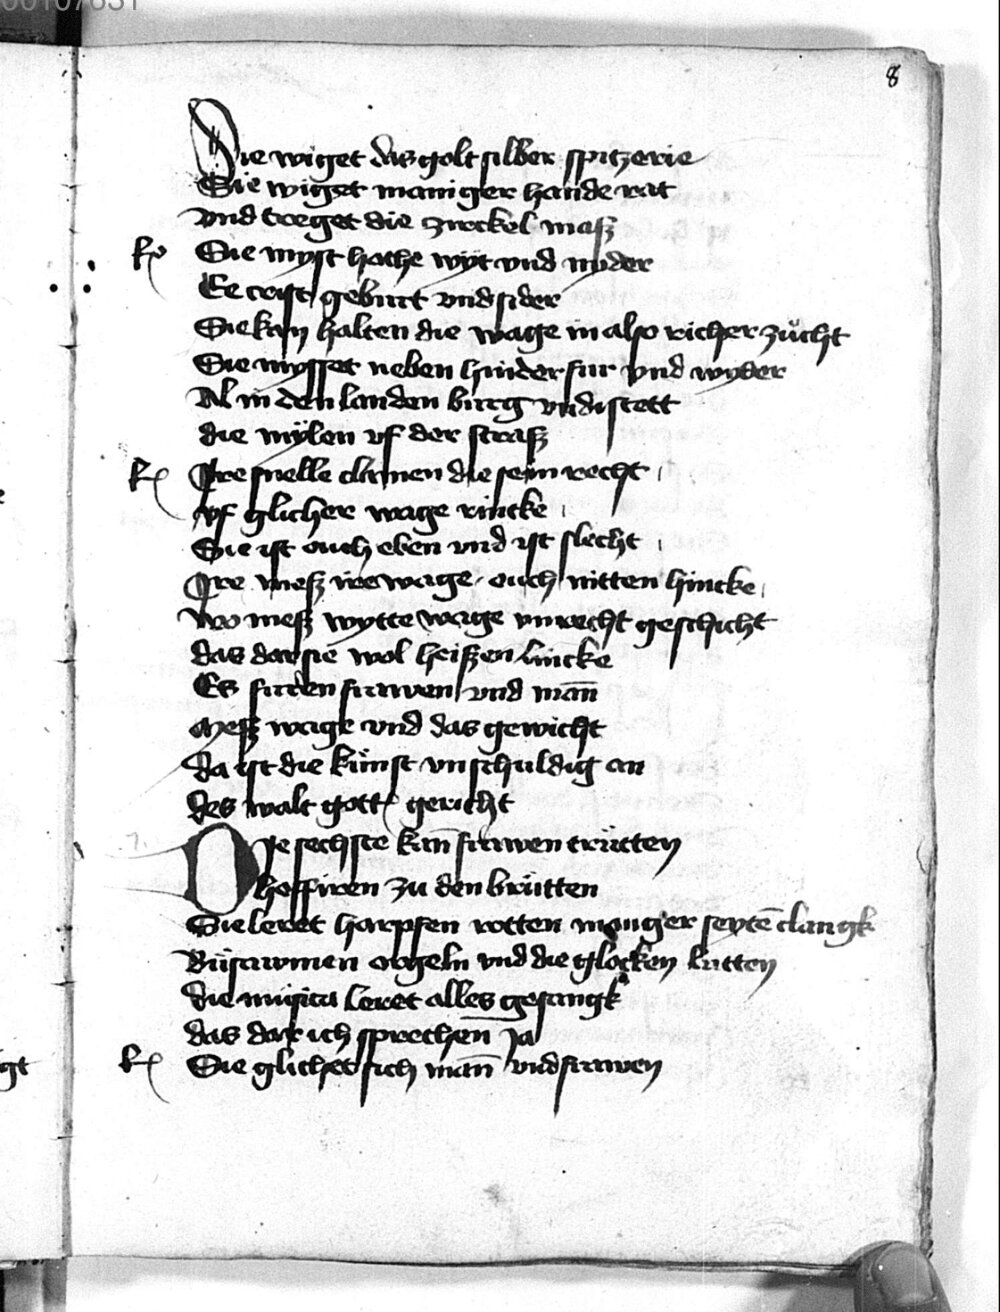 8
Sie wiget das golt silber spitzerie
Sie wiget maniger hande rat
vnd treget die zirckel masz
Sie myst hoche wyt vnd nyder
Ee crist geburt vnd sider
Sie kan halten die wage in also richer zücht
Sie mysset neben hinder fur vnd wyder
Al in den landen burg vnd stett
die mylen vf der strasz
Ire snelle die sein recht
vf glicher wage rincke
Sie ist ouch eben vnd ist slecht
Ire mesz ire wage ouch nitten hincke
wo mesz wytte wage vnrecht geschicht
das dar sie wol heiszen lincke
Es frawen vnd man̄
Mesz wage vnd das gewicht
da ist die künst vnschuldig an
des walt gott gericht
Die sechste kan frawen trütten
hoffiren zu den brütten
Sie leret harpffen rotten mangër seytē clangk
Büsawmen orgeln vnd die glocken lutten
die musica leret alles gesangk
das dar ich sprechen Ja
Sie glichet sich man̄ vnd frawen